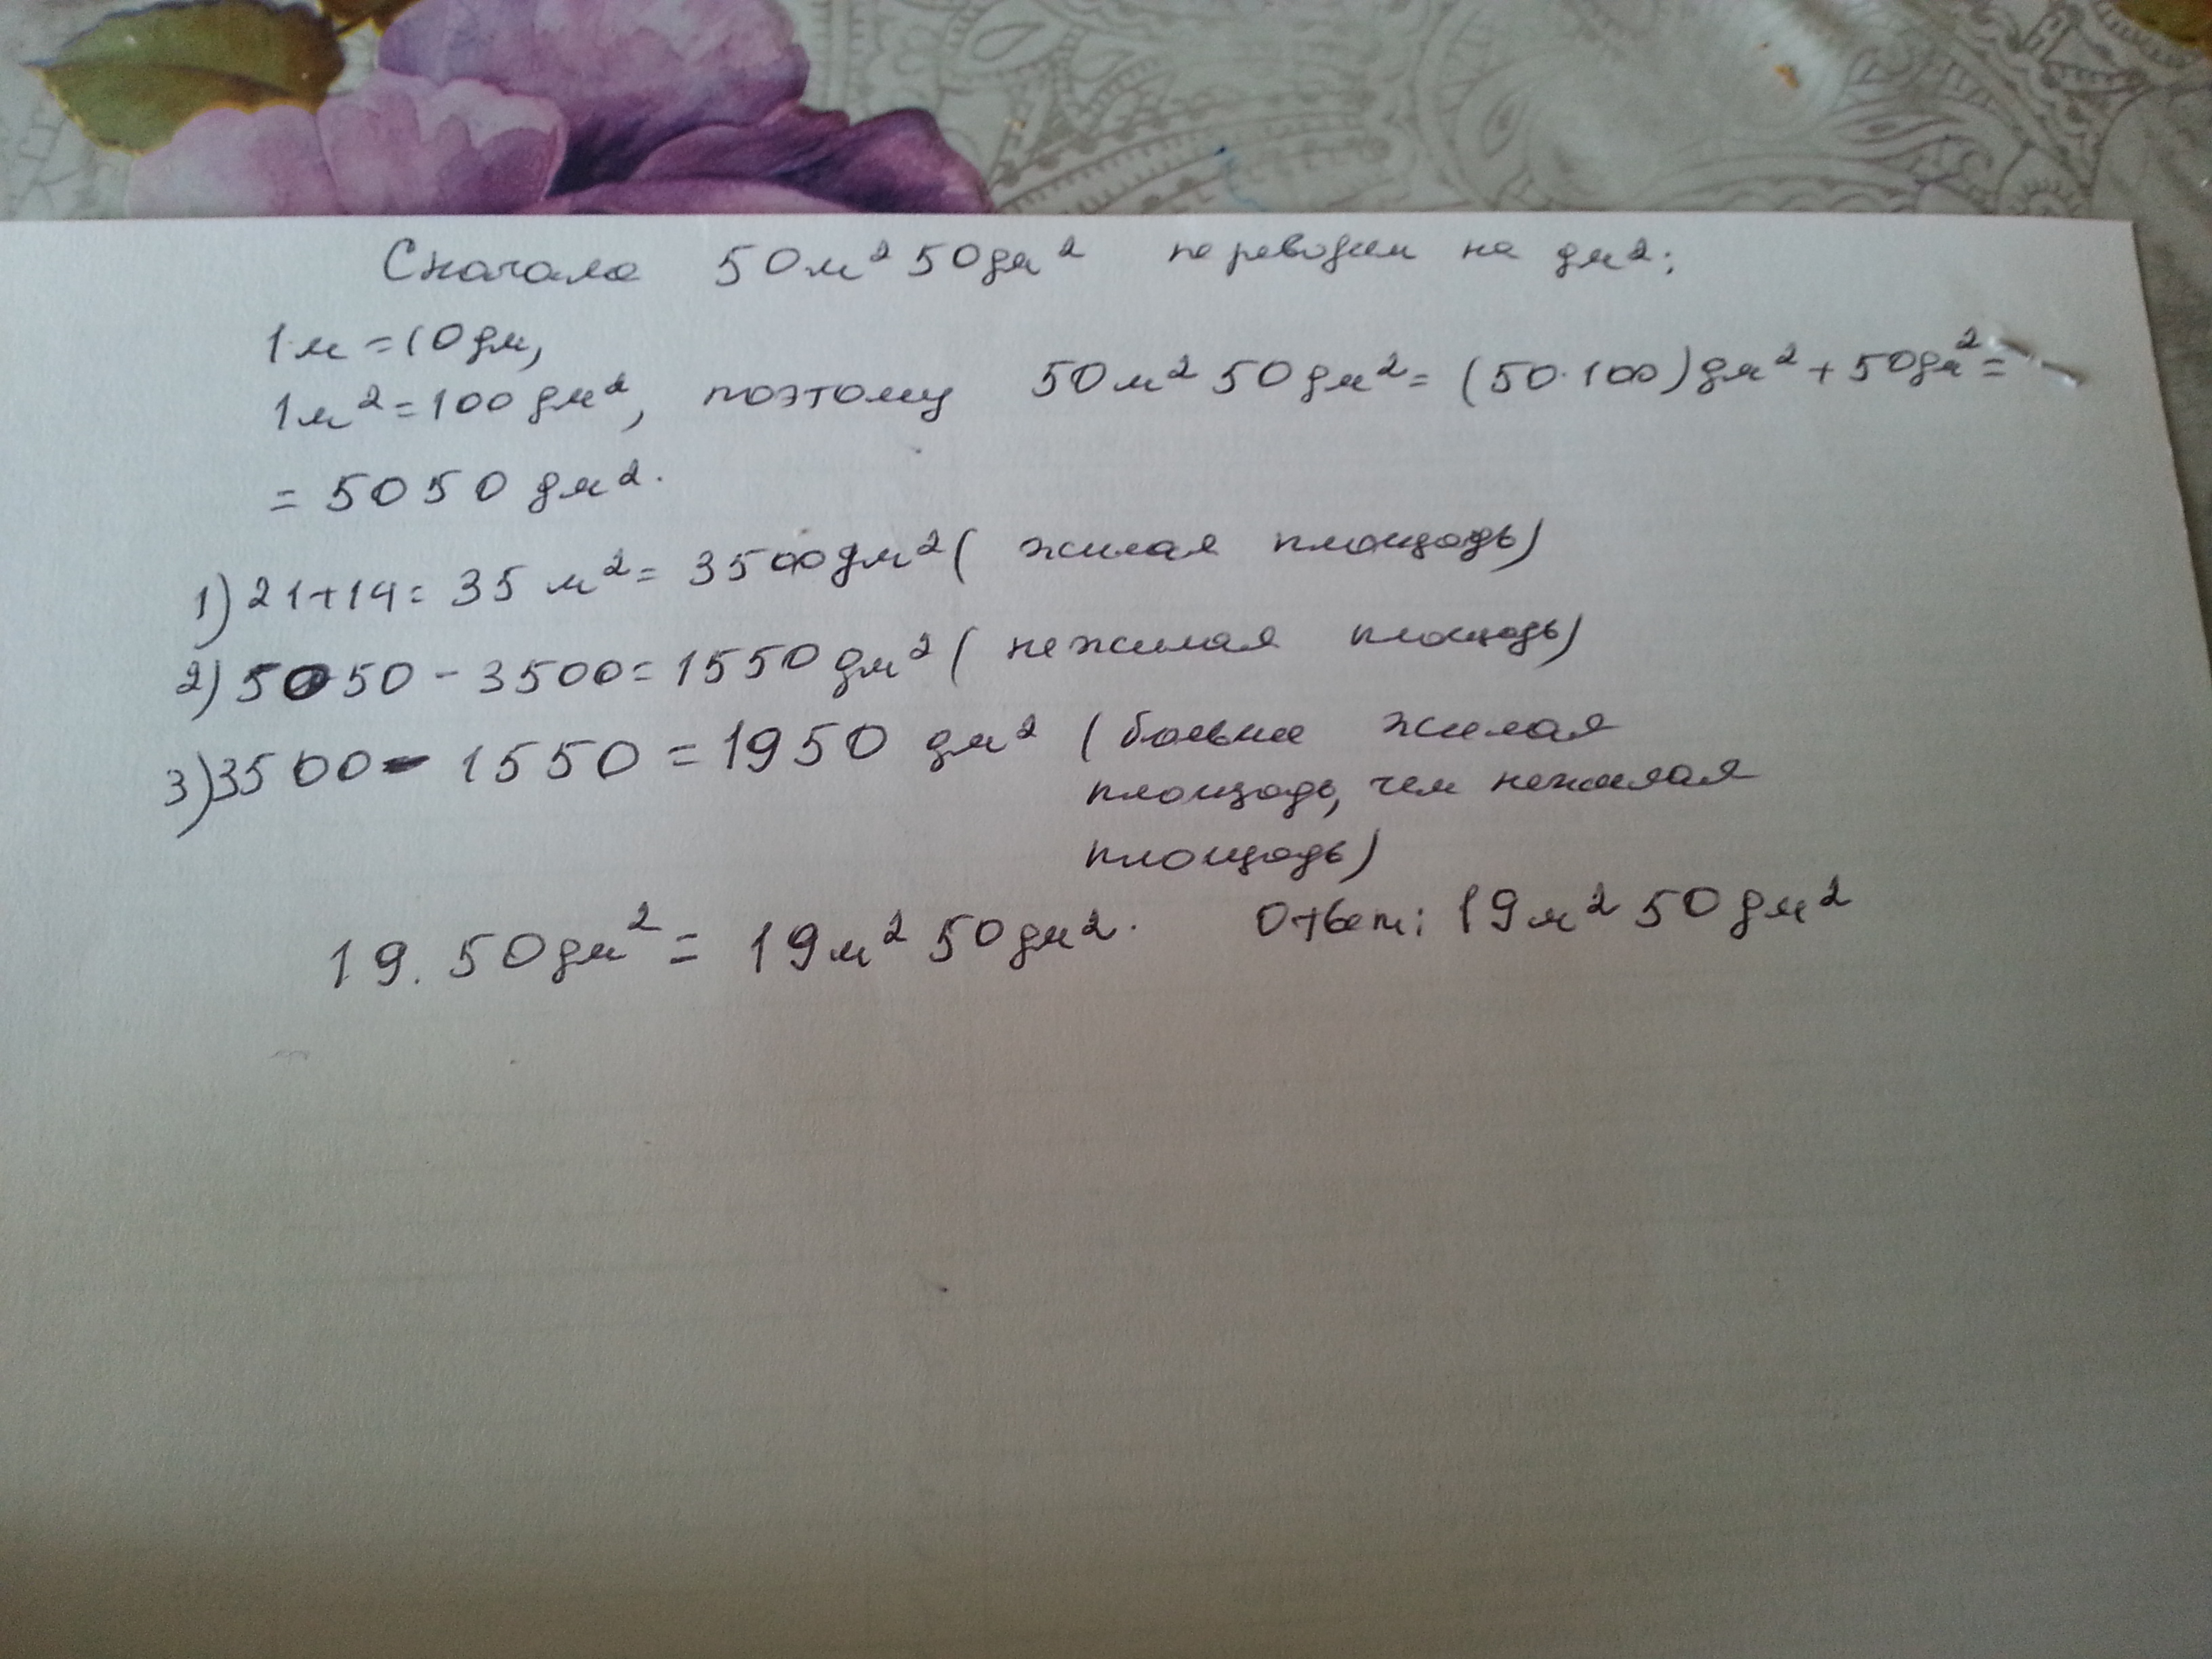 Сначала 50м² 50дм² переводим на дм²:
1м = 10дм,
1м² = 100дм², поэтому 50м² 50дм² = (50·100)дм² + 50дм² =
= 5050 дм².
1) 21+14 = 35 м² = 3500дм² ( жилая площадь)
2) 5050 - 3500 = 1550 дм² ( нежилая площадь)
3) 3500 - 1550 = 1950 дм² ( больше жилая
площадь, чем нежилая
площадь)
19.50дм² = 19м² 50дм². Ответ: 19м² 50дм²